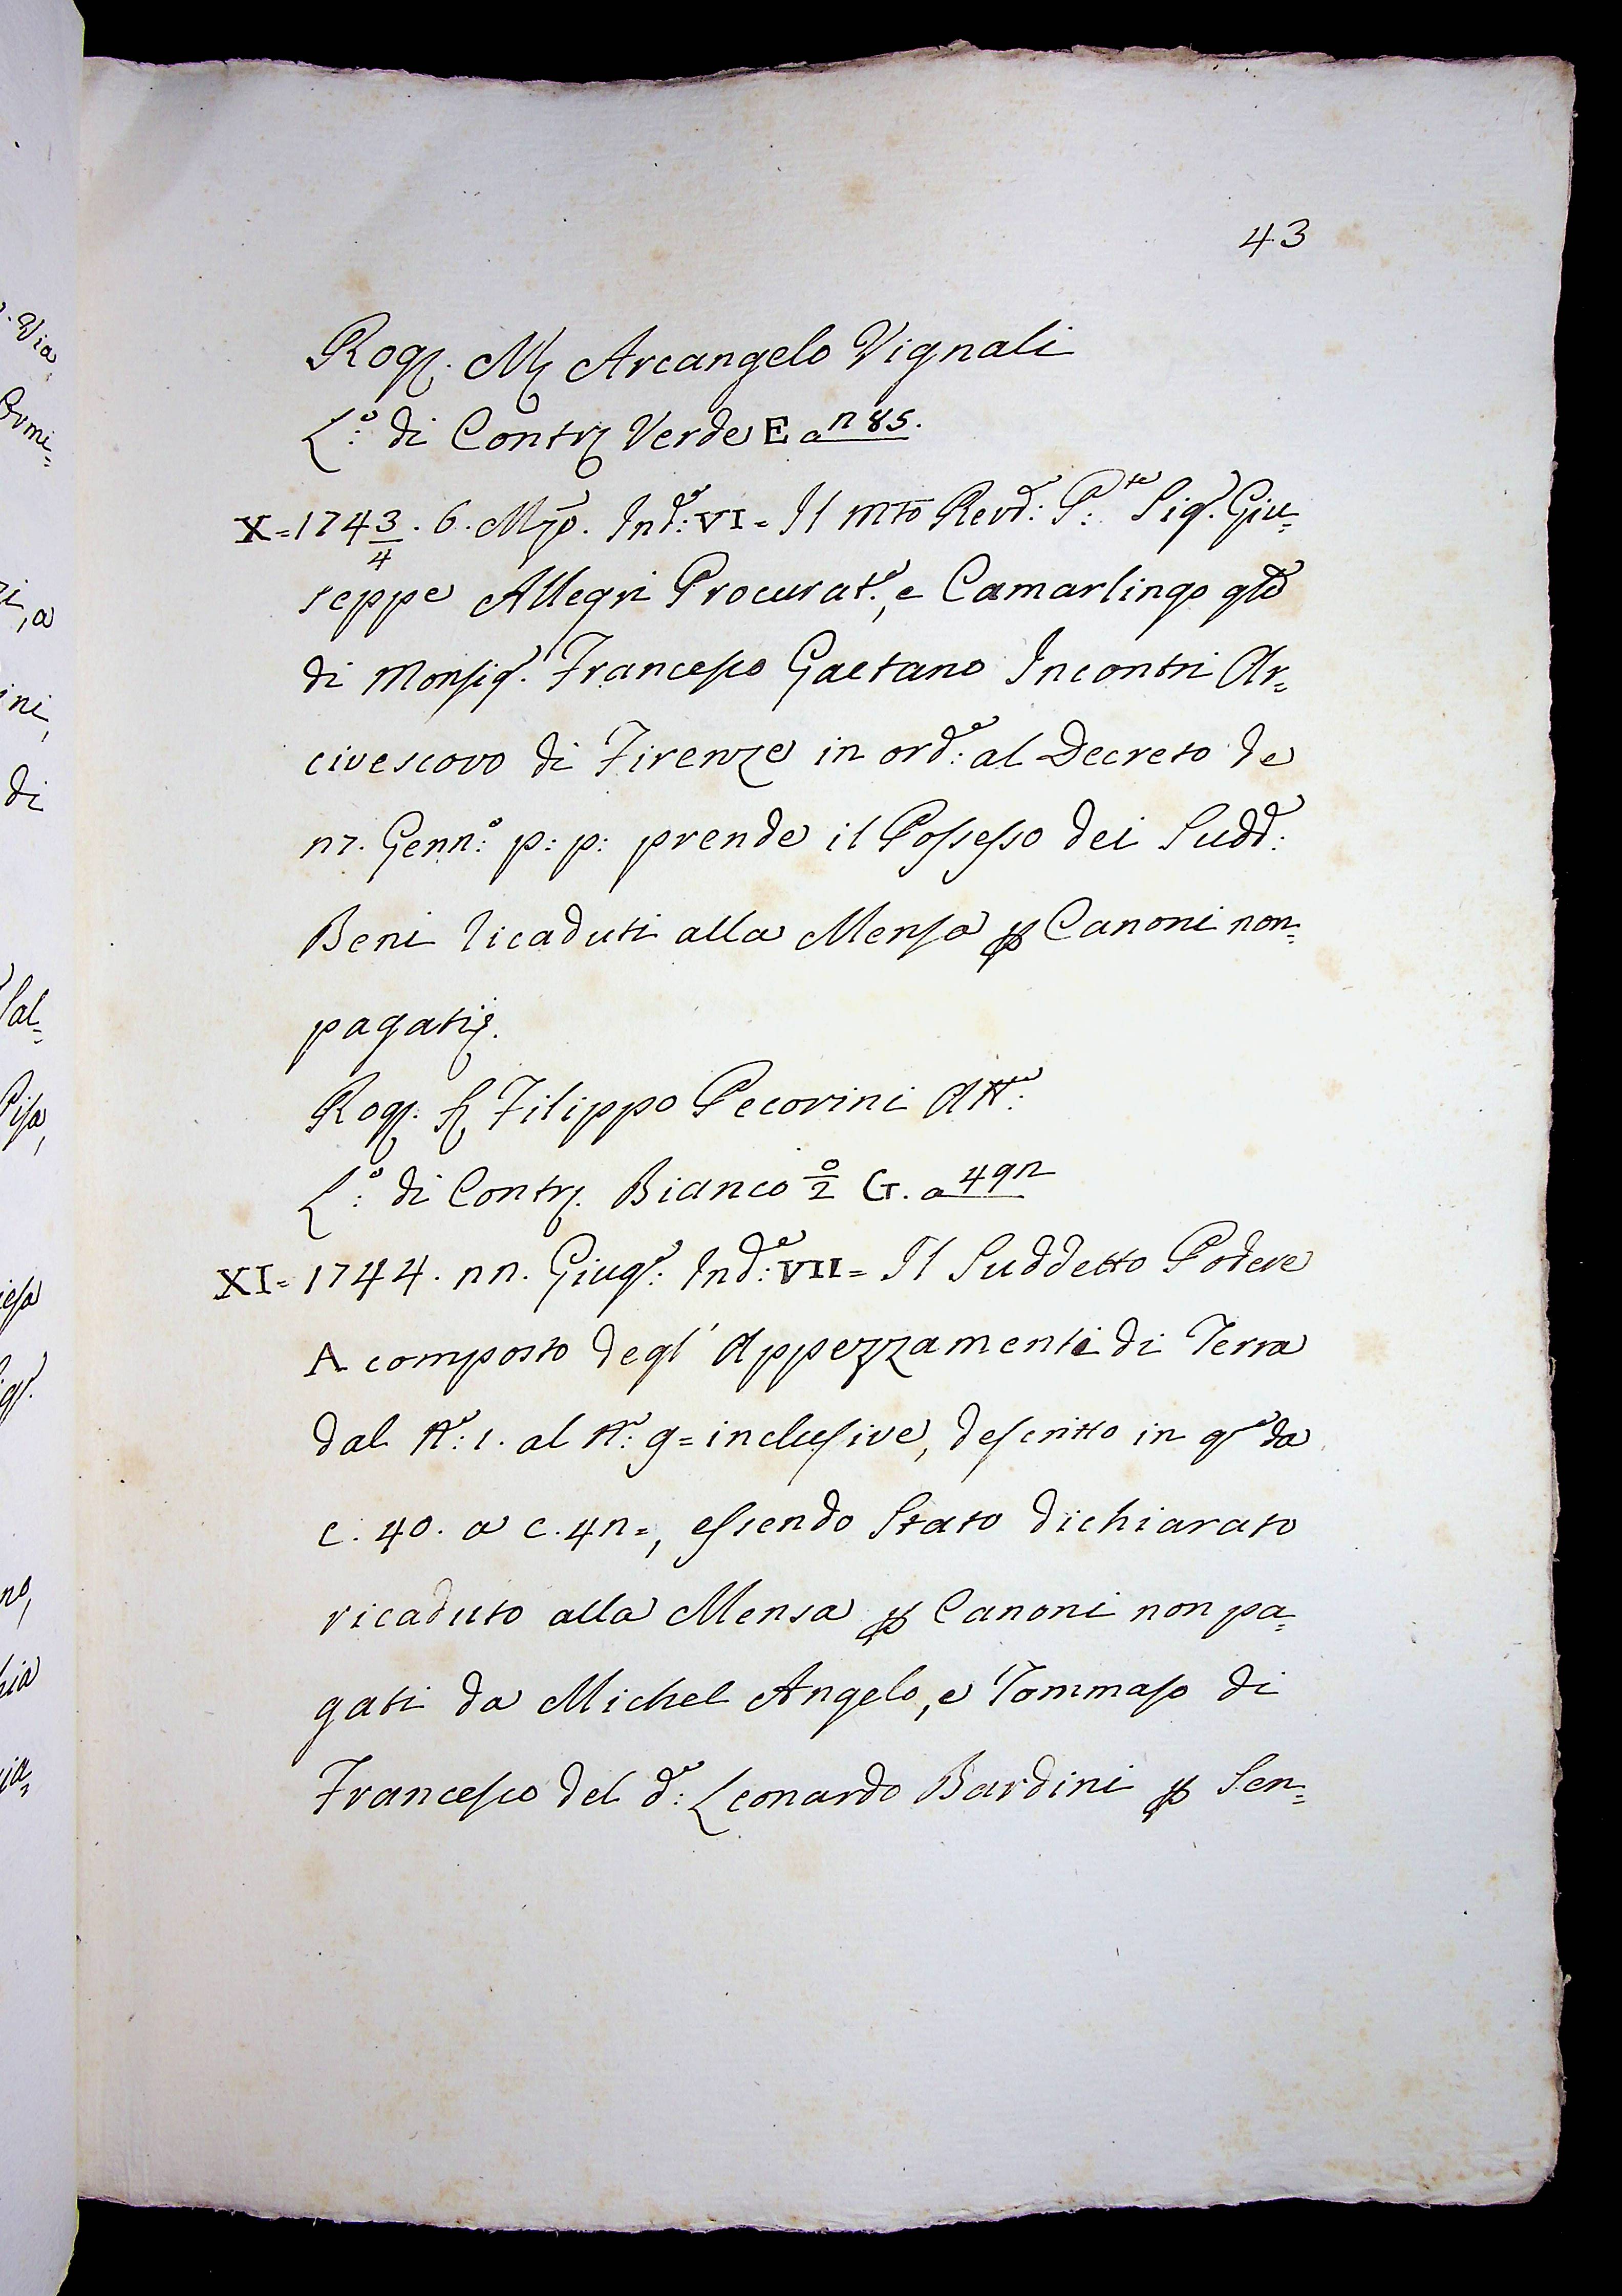 43
Rog. M Arcangelo Vignali
L.º di Contr. Verde E a 285.
X=1743/4. 6. Mzo. Ind.e: VI= Il mto Revd: P.te Sig.r Giu=
seppe Allegri Procurat.e, e Camarlingo gle
di Monsig.r Francesco Gaetano Incontri Ar=
civescovo di Firenze in ord.e: al Decreto de
27. Genn.º: p: p: prende il Possesso dei Sudd:
Beni ricaduti alla Mensa p Canoni non=
pagati.
Rog. S Filippo Pecorini Att.e:
L.º di Contr. Bianco º/2 G. a 492
XI=1744. 22. Giug.º: Ind.e: VII= Il Suddetto Podere
A composto degl' Appezzamenti di Terra
dal N.º: 1. al N.º: 9= inclusive, descritto in q.o da
c. 40. a c. 42=, essendo Stato dichiarato
ricaduto alla Mensa p Canoni non pa=
gati da Michel Angelo, e Tommaso di
Francesco del d.o: Leonardo Bardini p Sen=
Via
Ormi=
di
Sal=
Pisa,